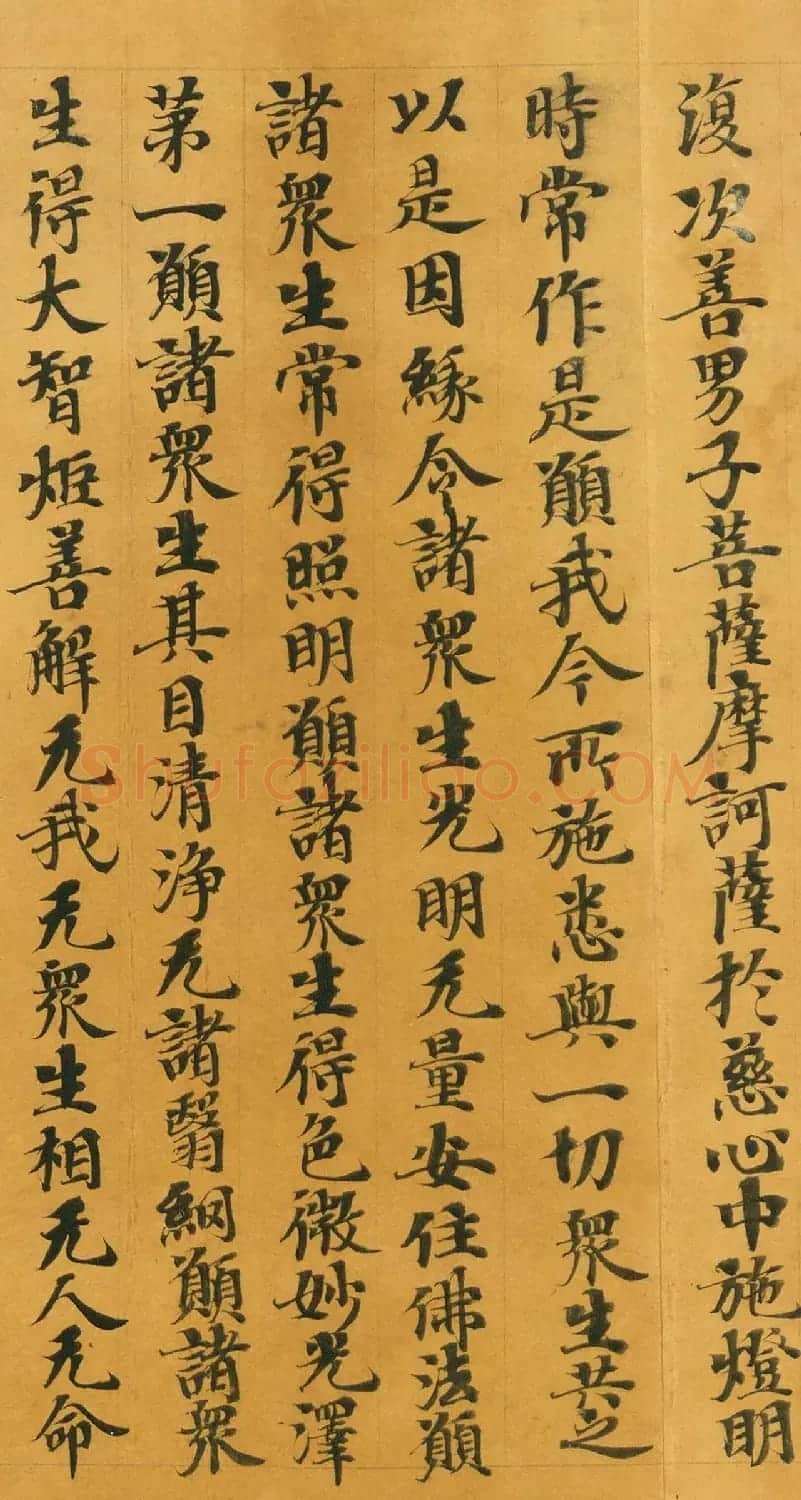 復次善男子菩薩摩訶薩扵慈心中施燈明
時常作是願我今所施悉與一切衆生共之
以是因緣令諸衆生光明无量安住佛法願
諸衆生常得照明願諸衆生得色微妙光澤
苐一願諸衆生其目清淨无諸翳網願諸衆
生得大智炬善解无我无衆生相无人无命
Shufaziliao.COM